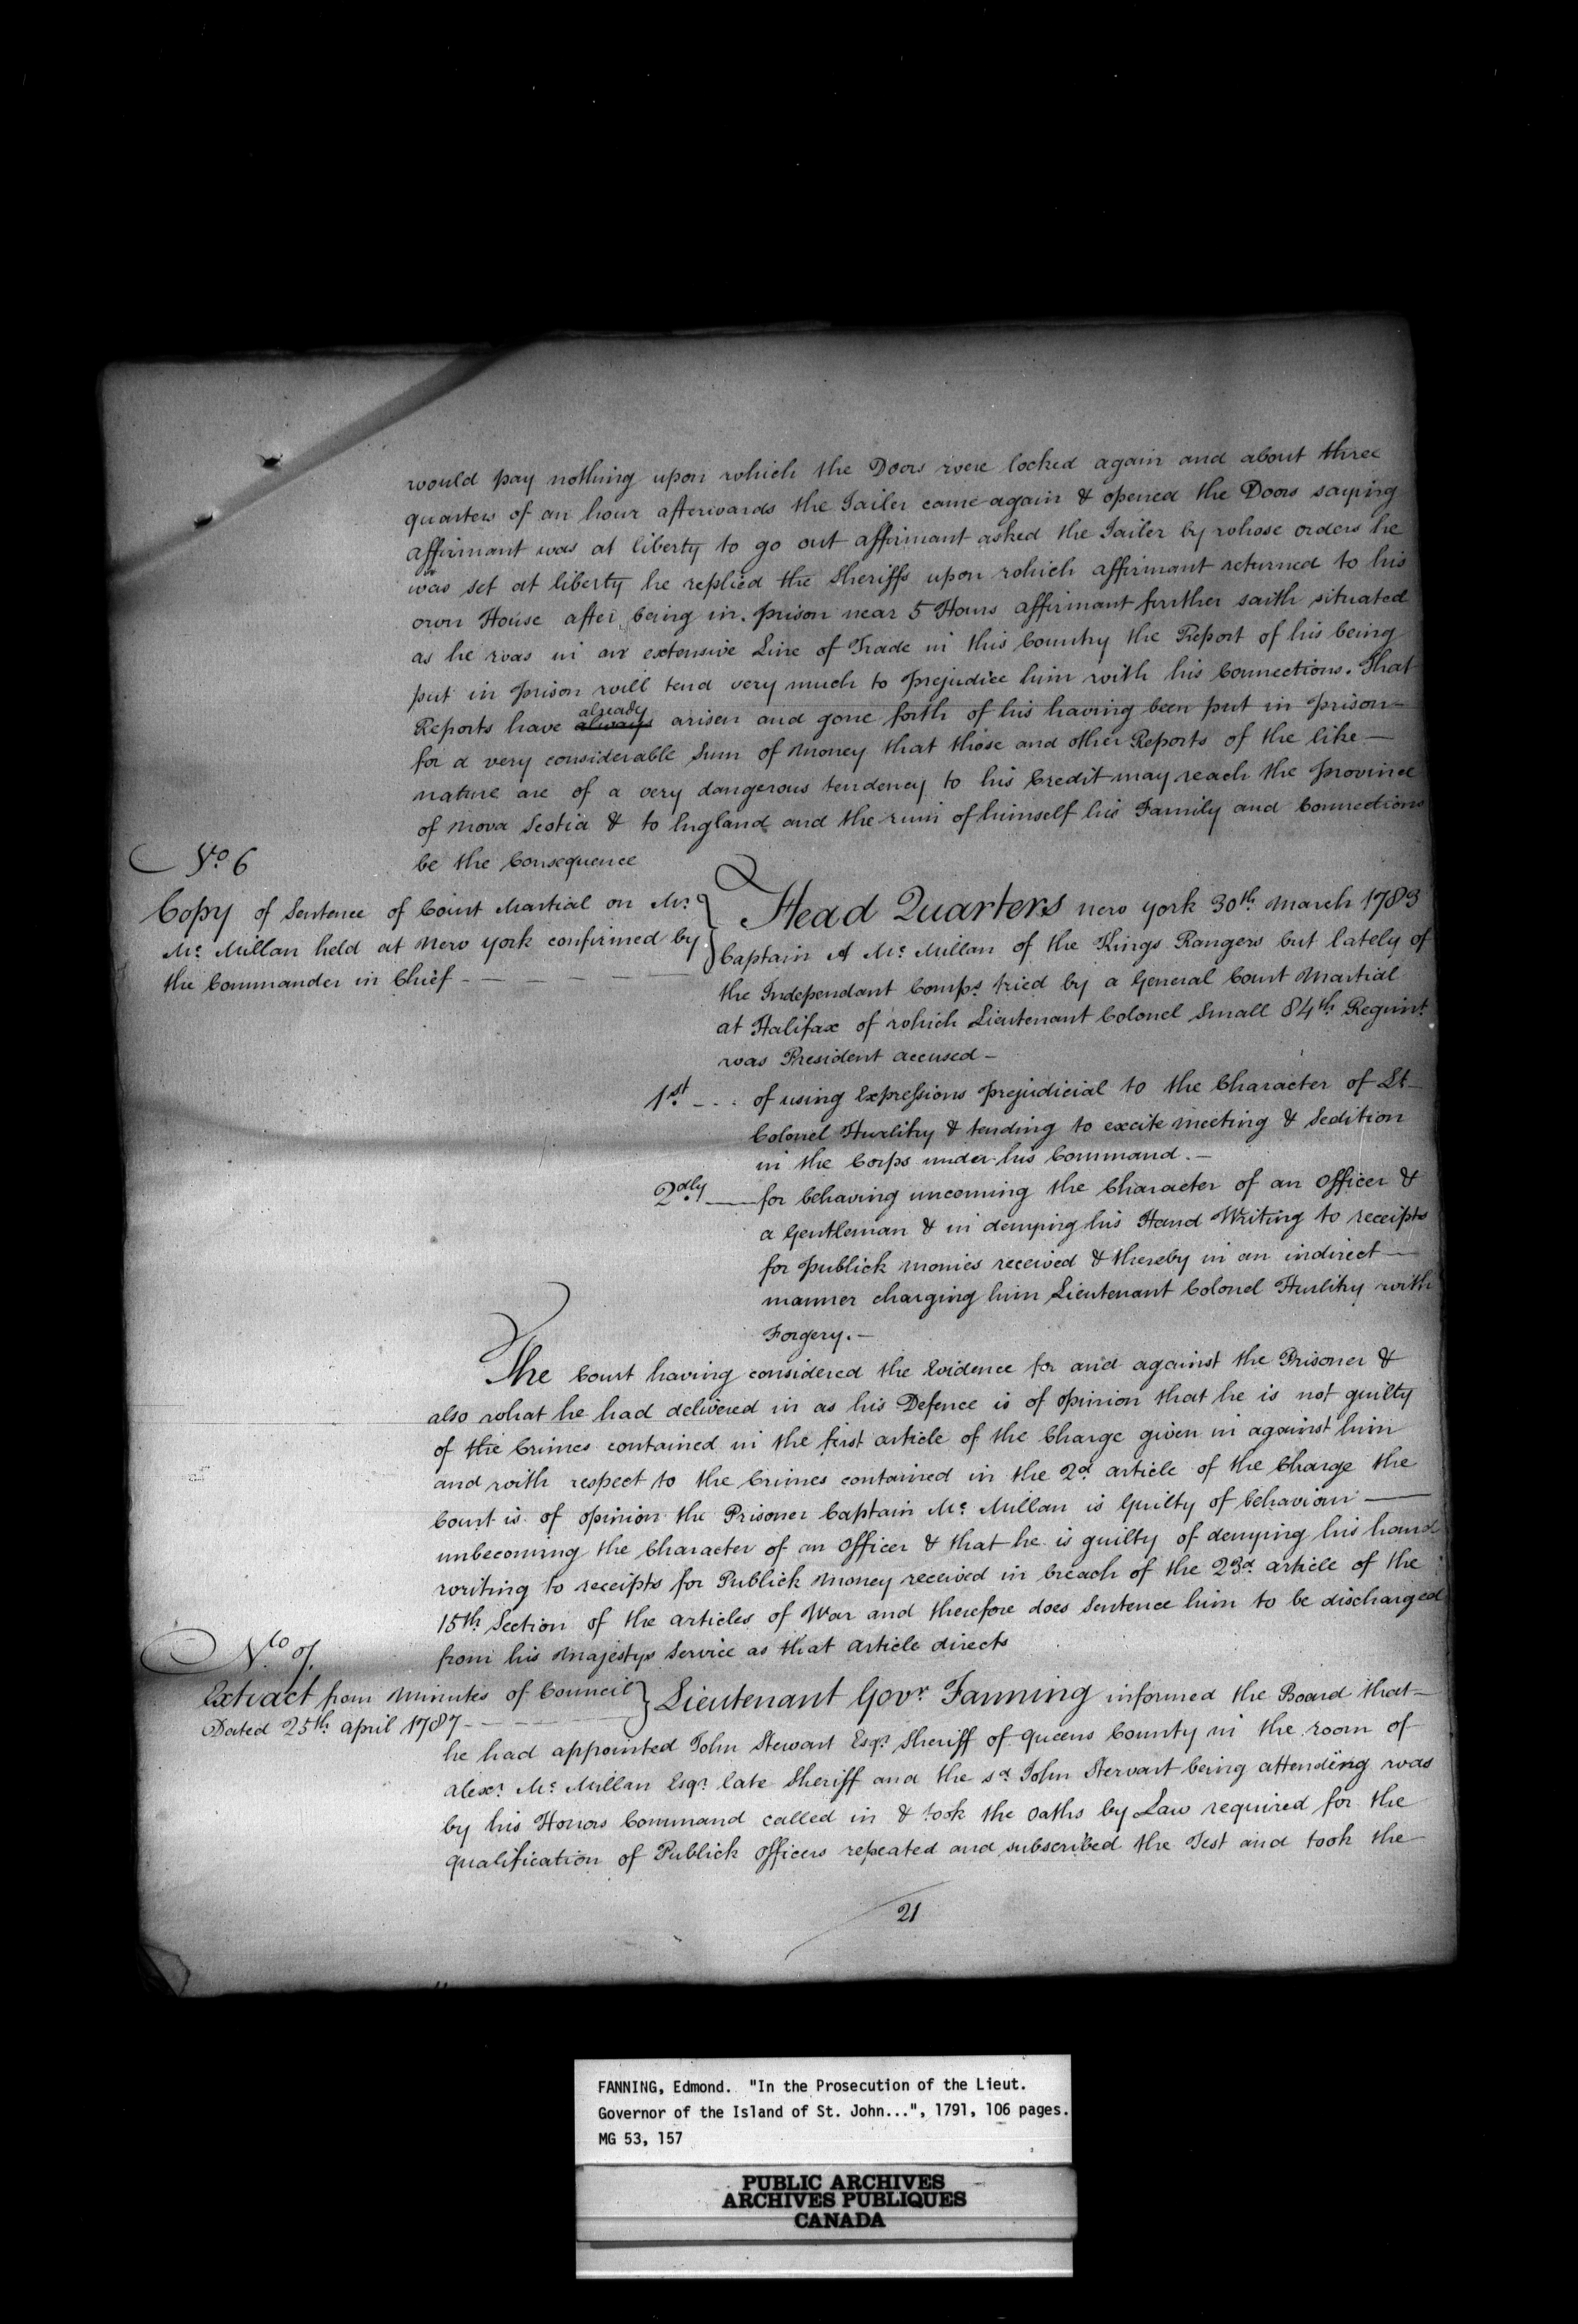 would pay nothing upon which the Doors were locked again and about three
quarters of an hour afterwards the Jailer came again & opened the Doors saying
affirmant was at liberty to go out affirmant asked the Jailer by whose orders he
was set at liberty he replied the Sheriffs upon which affirmant returned to his
own House after being in prison near 5 Hours affirmant further saith situated
as he was in an extensive Line of Trade in this Country the Report of his being
put in prison will tend very much to prejudice him with his Connections. That
Reports have always already arisen and gone forth of his having been put in prison
for a very considerable Sum of Money that those and other Reports of the like
nature are of a very dangerous tendency to his Credit may reach the province
of Nova Scotia & to England and the ruin of himself his Family and Connections
be the Consequence
No. 6
Copy of Sentence of Court Martial on Mr.
Mc. Millan held at New York confirmed by
the Commander in Chief
Head Quarters New York 30th. March 1783
Captain A Mc. Millan of the Kings Rangers but lately of
the Independant Comps. tried by a General Court Martial
at Halifax of which Lieutenant Colonel Small 84th. Regimt.
was President accused -
1st. of using Expressions prejudicial to the Character of Lt
Colonel Hurlihy & tending to excite meeting & Sedition
in the Corps under his Command. -
2dly for behaving uncoming the Character of an Officer &
a Gentleman & in denying his Hand Writing to receipts
for publick monies received & thereby in an indirect
manner charging him Lieutenant Colonel Hurlihy with
Forgery. -
The Court having considered the Evidence for and against the Prisoner &
also what he had delivered in as his Defence is of opinion that he is not guilty
of the Crimes contained in the first article of the Charge given in against him
and with respect to the Crimes contained in the 2d. article of the Charge the
Court is of opinion the Prisoner Captain Mc. Millan is Guilty of behaviour
unbecoming the Character of an Officer & that he is guilty of denying his hand
writing to receipts for Publick Money received in breach of the 23d. article of the
15th. Section of the articles of War and therefore does Sentence him to be discharged
from his Majestys Service as that article directs
No. 7.
Extract from Minutes of Council
Dated 25th. April 1787
Lieutenant Govr. Fanning informed the Board that
he had appointed John Stewart Esqr. Sheriff of Queens County in the room of
Alexr. Mc. Millan Esqr. late Sheriff and the sd. John Stewart being attending was
by his Honors Command called in & took the Oaths by Law required for the
qualification of Publick Officers repeated and subscribed the Test and took the
21
FANNING, Edmond. "In the Prosecution of the Lieut.
Governor of the Island of St. John...", 1791, 106 pages.
MG 53, 157
PUBLIC ARCHIVES
ARCHIVES PUBLIQUES
CANADA